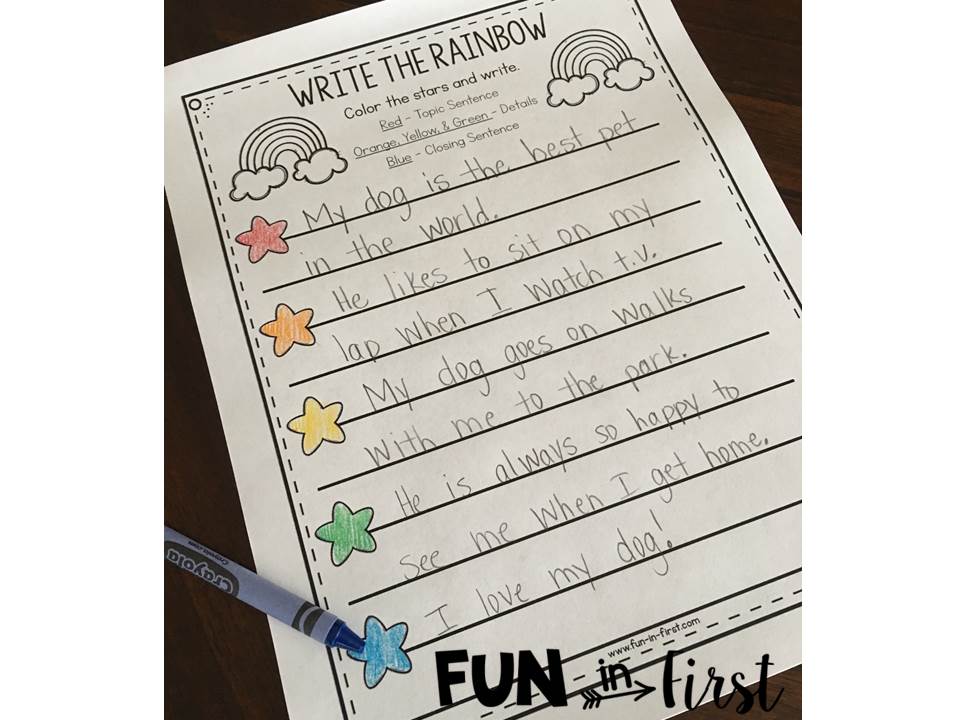 WRITE THE RAINBOW
Color the stars and write.
Red - Topic Sentence
Orange, Yellow, & Green - Details
Blue - Closing Sentence
My dog is the best pet
in the world.
He likes to sit on my
lap when I watch t.v.
My dog goes on walks
with me to the park.
He is always so happy to
see me when I get home.
I love my dog!
Crayola
www.fun-in-first.com
FUN in First